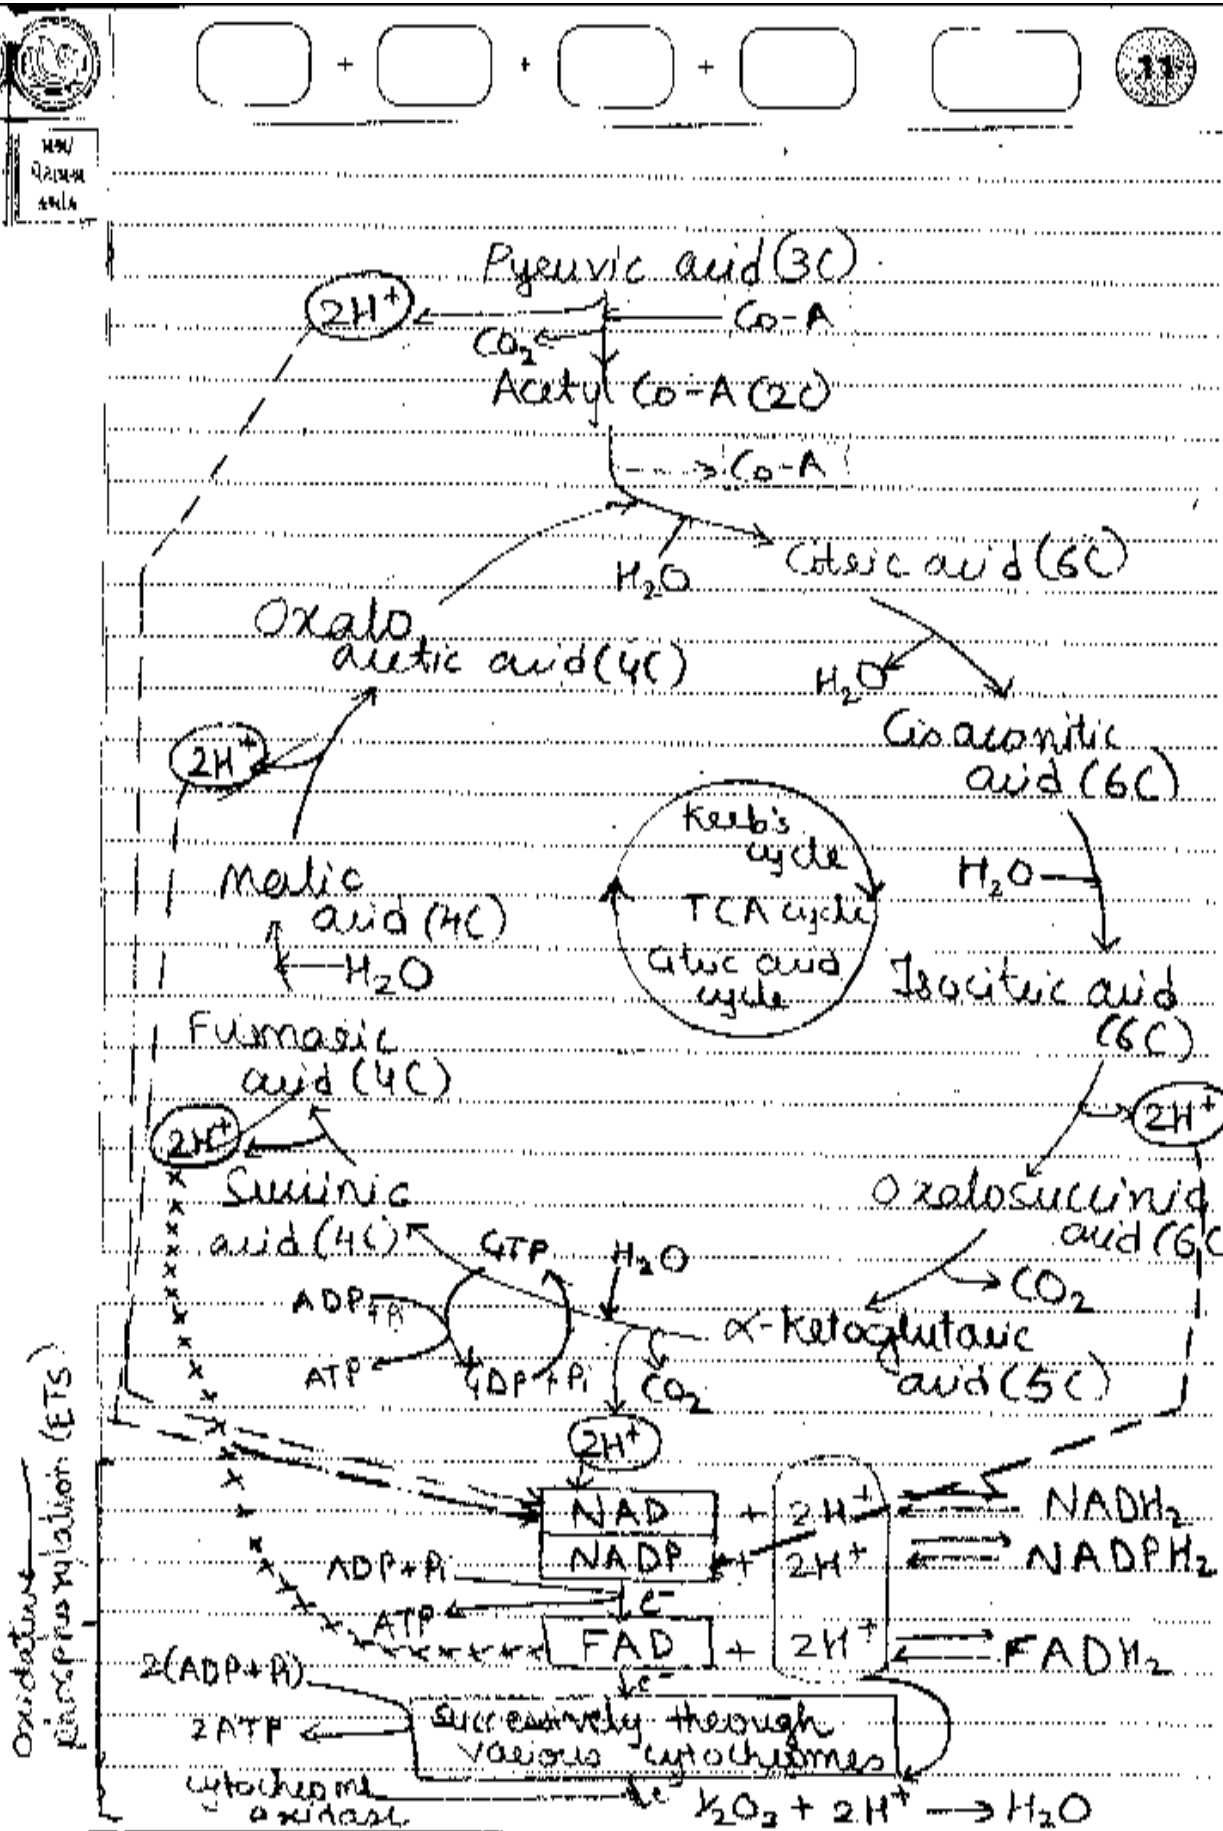 + + +
11
Pyruvic acid (3C)
2H⁺
Co-A
CO₂
Acetyl Co-A (2C)
Co-A
H₂O
Citric acid (6C)
Oxalo
acetic acid (4C)
H₂O
Cisaconitic
acid (6C)
2H⁺
Kreb's
cycle
TCA cycle
Citric acid
cycle
H₂O
Malic
acid (4C)
H₂O
Isocitric acid
(6C)
Fumaric
acid (4C)
2H⁺
2H⁺
Succinic
acid (4C)
Oxalosuccinic
acid (6C
GTP
H₂O
CO₂
ADP+Pi
α-ketoglutaric
acid (5C)
ATP
GDP+Pi
CO₂
2H⁺
Oxidative
phosphorylation (ETS)
NAD + 2H⁺ NADH₂
NADP + 2H⁺ NADPH₂
ADP+Pi
e⁻
ATP
FAD + 2H⁺ FADH₂
2(ADP+Pi)
e⁻
2ATP
successively through
various cytochromes
cytochrome
oxidase
e⁻
½O₂ + 2H⁺ → H₂O